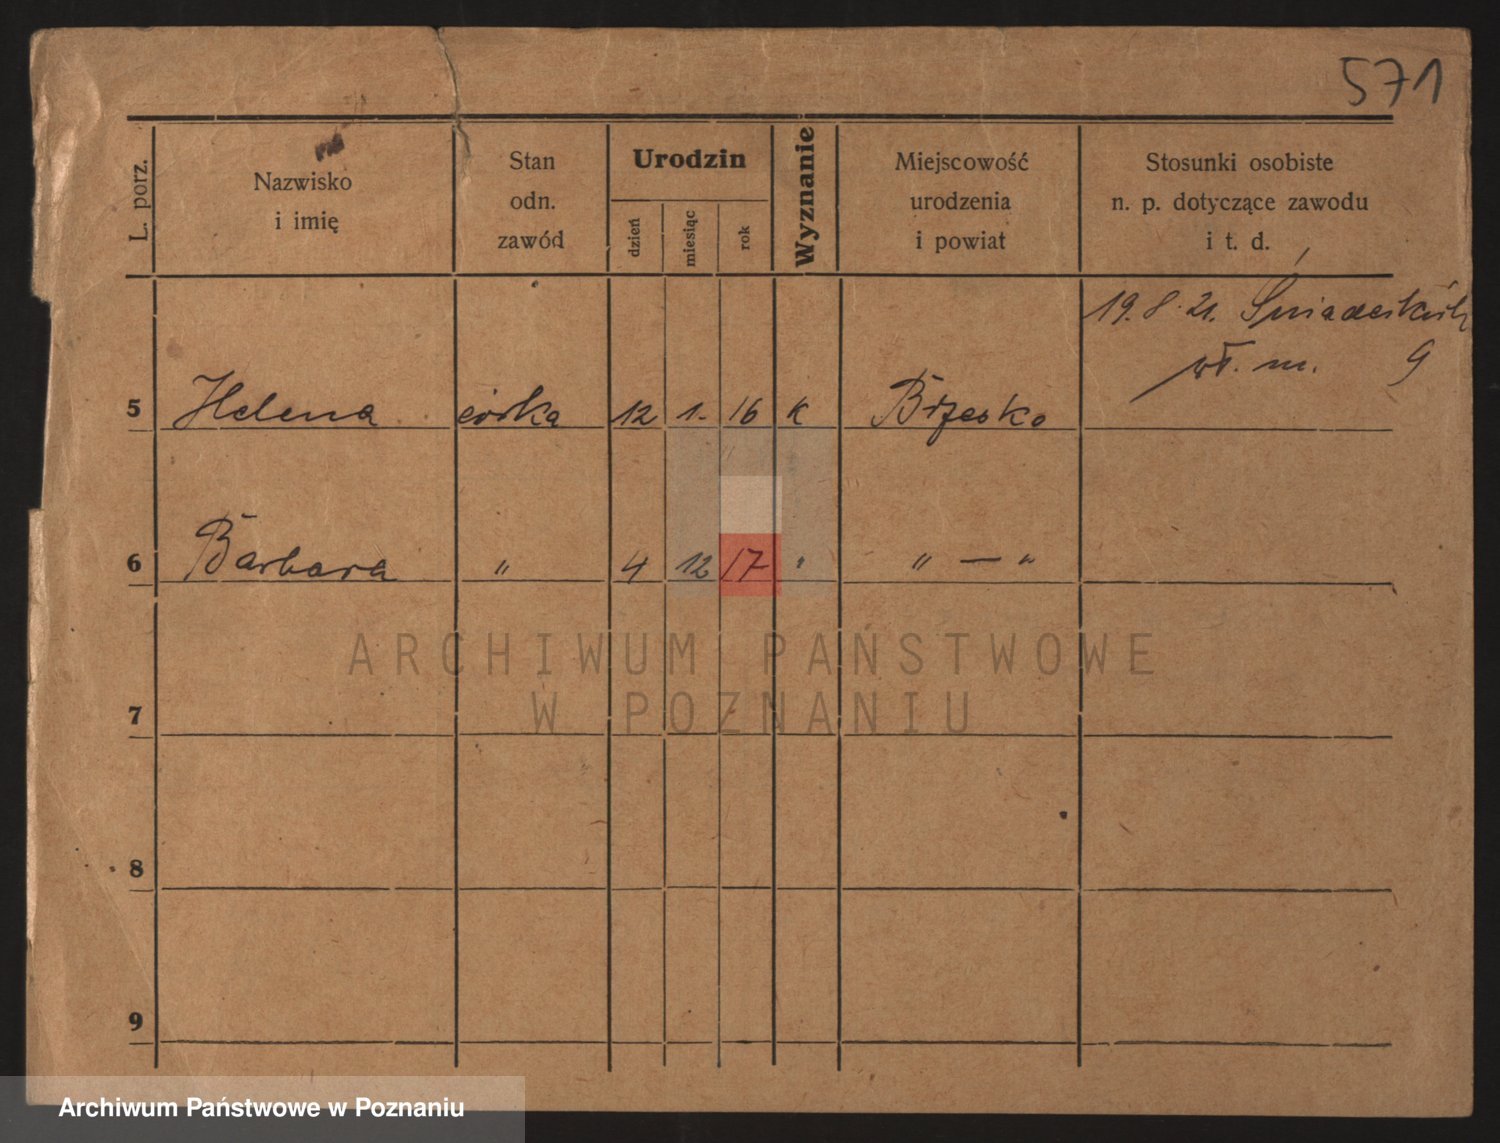 571
L. porz.
Nazwisko
i imię
Stan
odn.
zawód
Urodzin
dzień
miesiąc
rok
Wyznanie
Miejscowość
urodzenia
i powiat
Stosunki osobiste
n. p. dotyczące zawodu
i t. d.
19. 8. 21. Śniadeckich
wł. m. 9
5 Helena córka 12 1. 16 k Brzesko
6 Barbara " 4 12 17 " " — "
ARCHIWUM PAŃSTWOWE
W POZNANIU
7
8
9
Archiwum Państwowe w Poznaniu